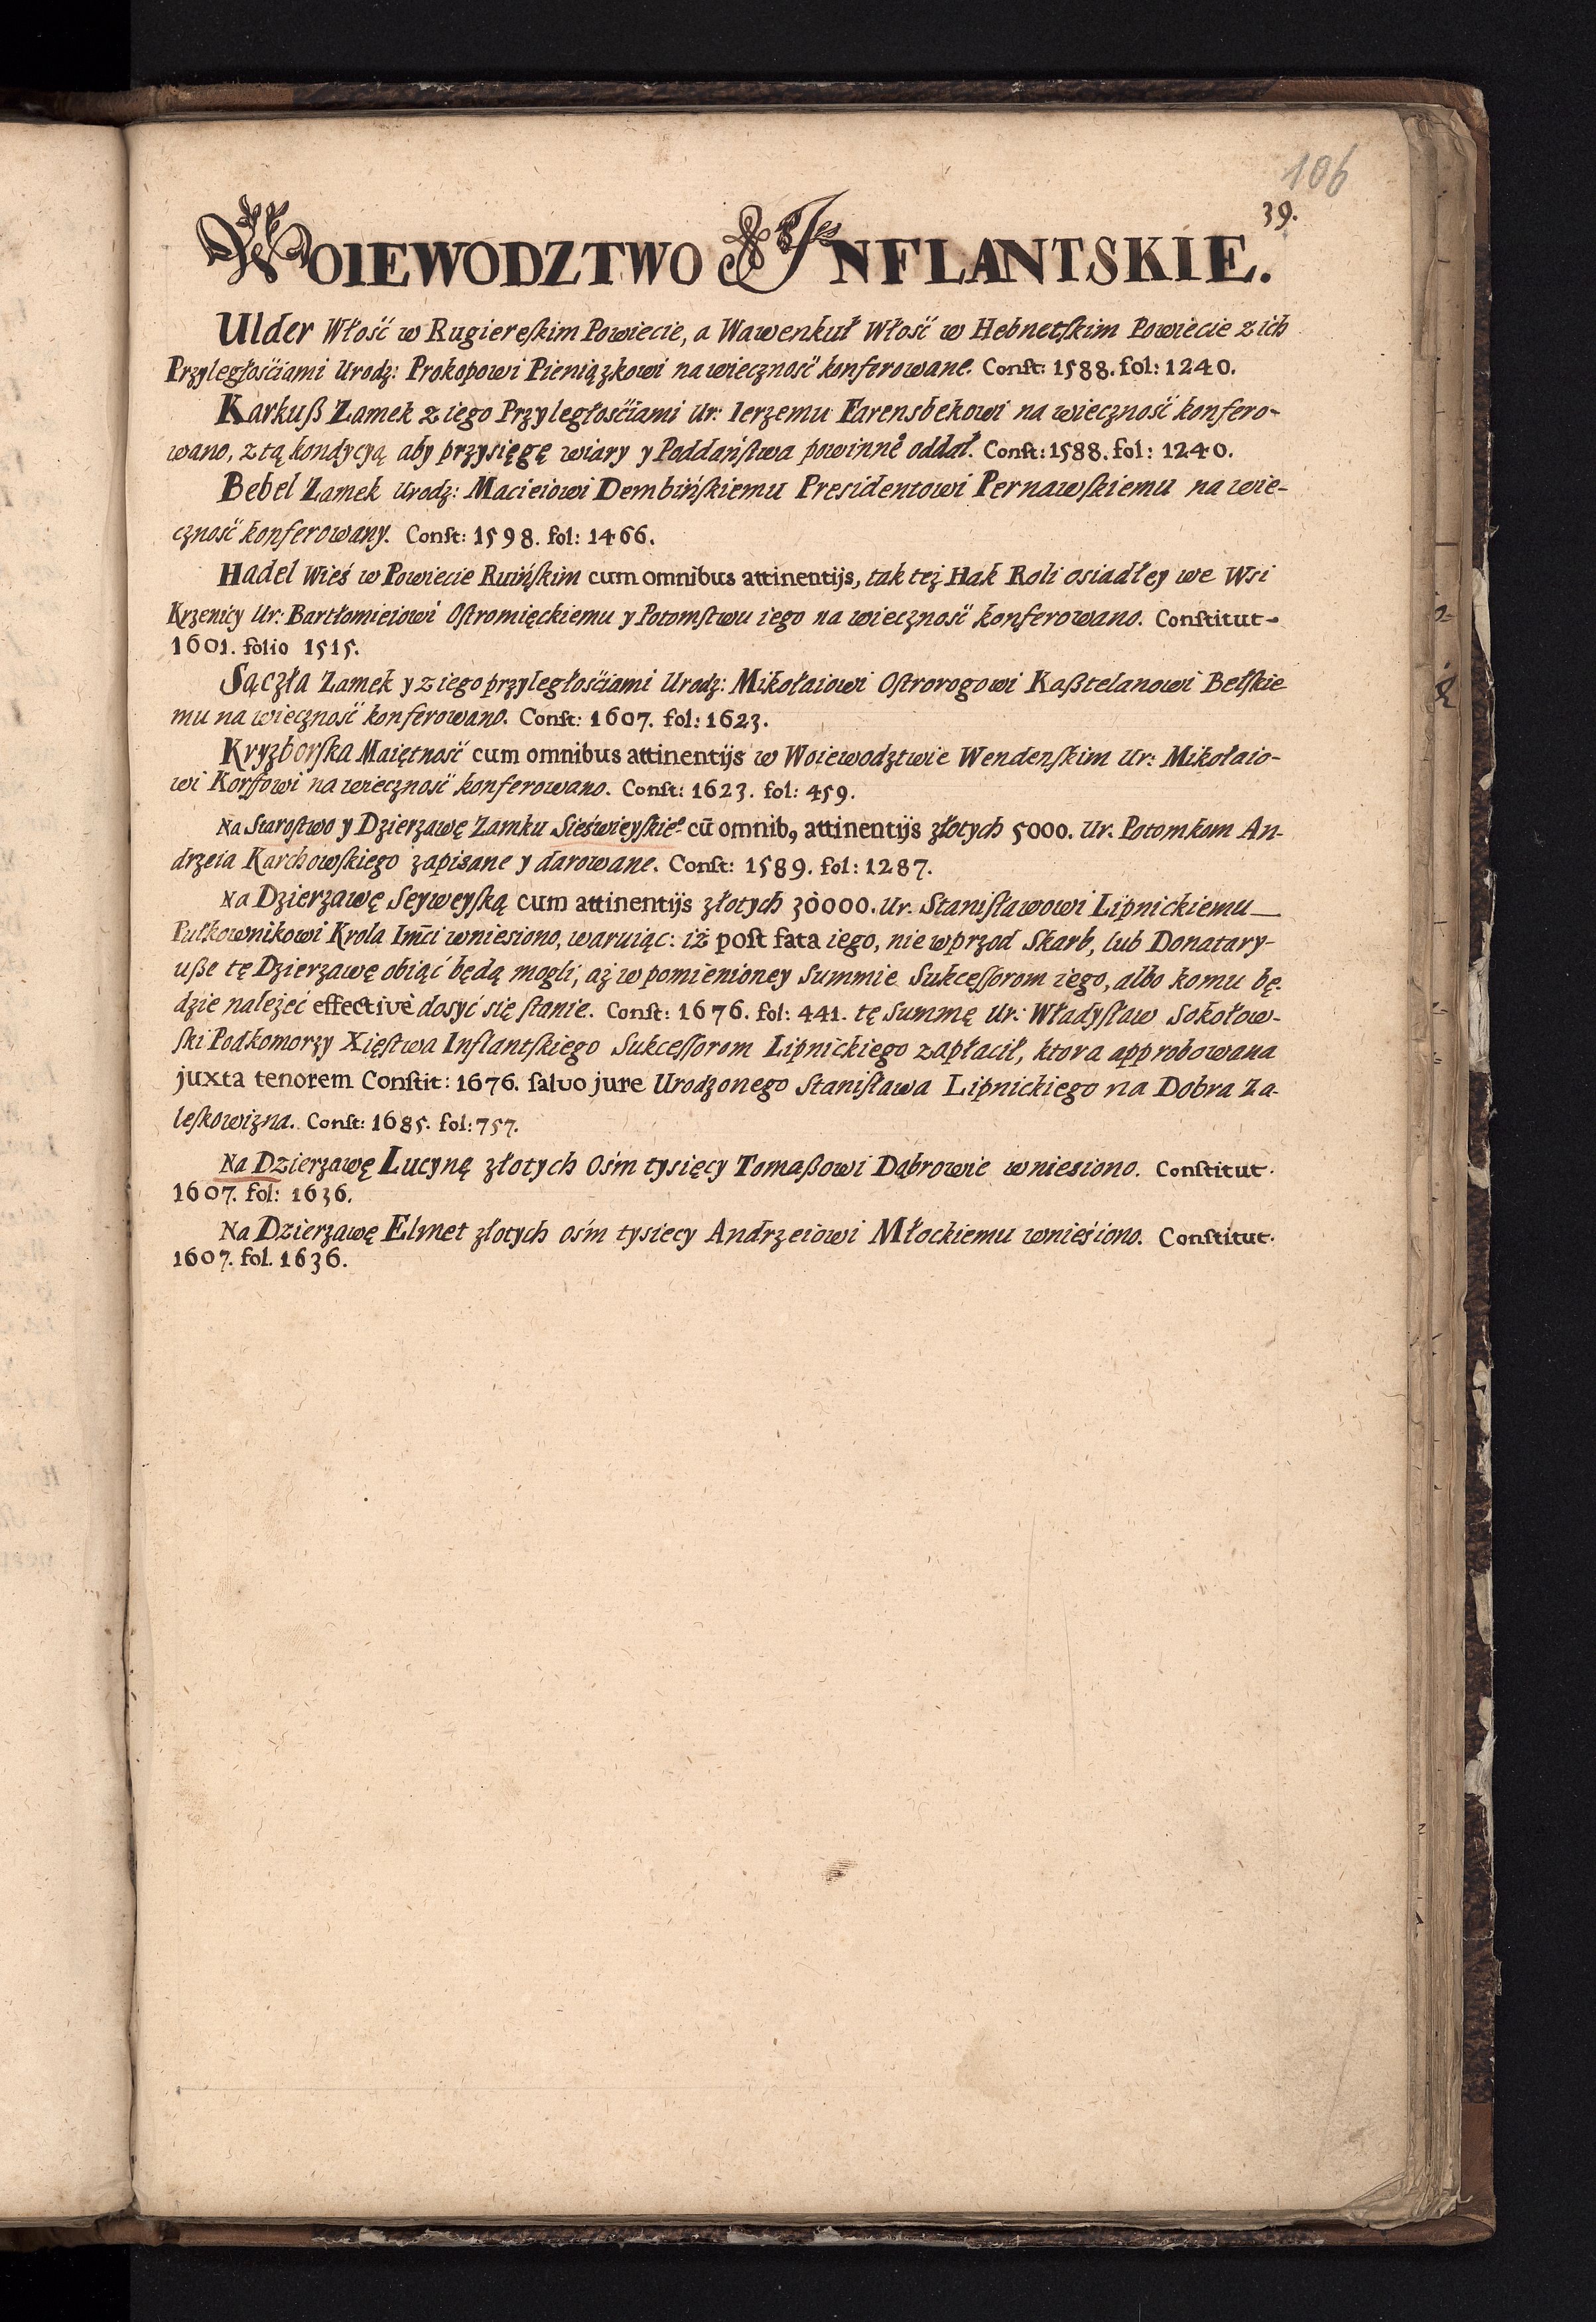 106
39.
WOIEWODZTWO INFLANTSKIE.
Ulder Włość w Rugiereſkim Powiecie, a Wawenkuł Włość w Hebnetſkim Powiecie z ich
Przyległośćiami Urodz: Prokopowi Pieniązkowi na wieczność konferowane. Conſt: 1588. fol: 1240.
Karkuß Zamek z iego Przyległośćiami Ur: Ierzemu Farensbekowi na wieczność konfero-
wano, z tą kondycyą aby przysięgę wiary y Poddańſtwa powinnė oddał. Conſt: 1588. fol: 1240.
Bebel Zamek Urodz: Macieiowi Dembińſkiemu Presidentowi Pernawſkiemu na wie-
czność konferowany. Conſt: 1598. fol: 1466.
Hadel Wieś w Powiecie Ruińſkim cum omnibus attinentijs, tak też Hak Roli osiadłey we Wsi
Krzenicy Ur: Bartłomieiowi Oſtromięckiemu y Potomſtwu iego na wieczność konferowano. Conſtitut-
1601. folio 1515.
Sączła Zamek y z iego przyległośćiami Urodz: Mikołaiowi Oſtrorogowi Kaßtelanowi Bełſkie
mu na wieczność konferowano. Conſt: 1607. fol: 1623.
Kryzborſka Maiętność cum omnibus attinentijs w Woiewodztwie Wendenſkim Ur: Mikołaio-
wi Korffowi na wieczność konferowano. Conſt: 1623. fol: 459.
Na Staroſtwo y Dzierzawę Zamku Sieświeyſkieo cū omnib9 attinentijs złotych 5000. Ur. Potomkom An-
drzeia Karchowſkiego zapisane y darowane. Conſt: 1589. fol: 1287.
Na Dzierzawę Seyweyſką cum attinentijs złotych 30000. Ur. Staniſławowi Lipnickiemu
Pułkownikowi Krola Im̄ci wniesiono, waruiąc: iż poſt fata iego, nie wprzod Skarb, lub Donatary-
uße tę Dzierzawę obiąć będą mogli, aż w pomienioney Summie Sukceſſorom iego, albo komu bę-
dzie należeć effectivè dosyć się ſtanie. Conſt: 1676. fol: 441. tę Summę Ur: Władyſław Sokołow-
ſki Podkomorzy Xięſtwa Inflantſkiego Sukceſſorom Lipnickiego zapłacił, ktora approbowana
juxta tenorem Conſtit: 1676. ſalvo jure Urodzonego Staniſława Lipnickiego na Dobra Za-
leſkowizna. Conſt: 1685. fol: 757.
Na Dzierzawę Lucynę złotych Ośm tysięcy Tomaßowi Dąbrowie wniesiono. Conſtitut.
1607. fol: 1636.
Na Dzierzawę Elmet złotych ośm tysiecy Andrzeiowi Młockiemu wnieśiono. Conſtitut.
1607. fol. 1636.